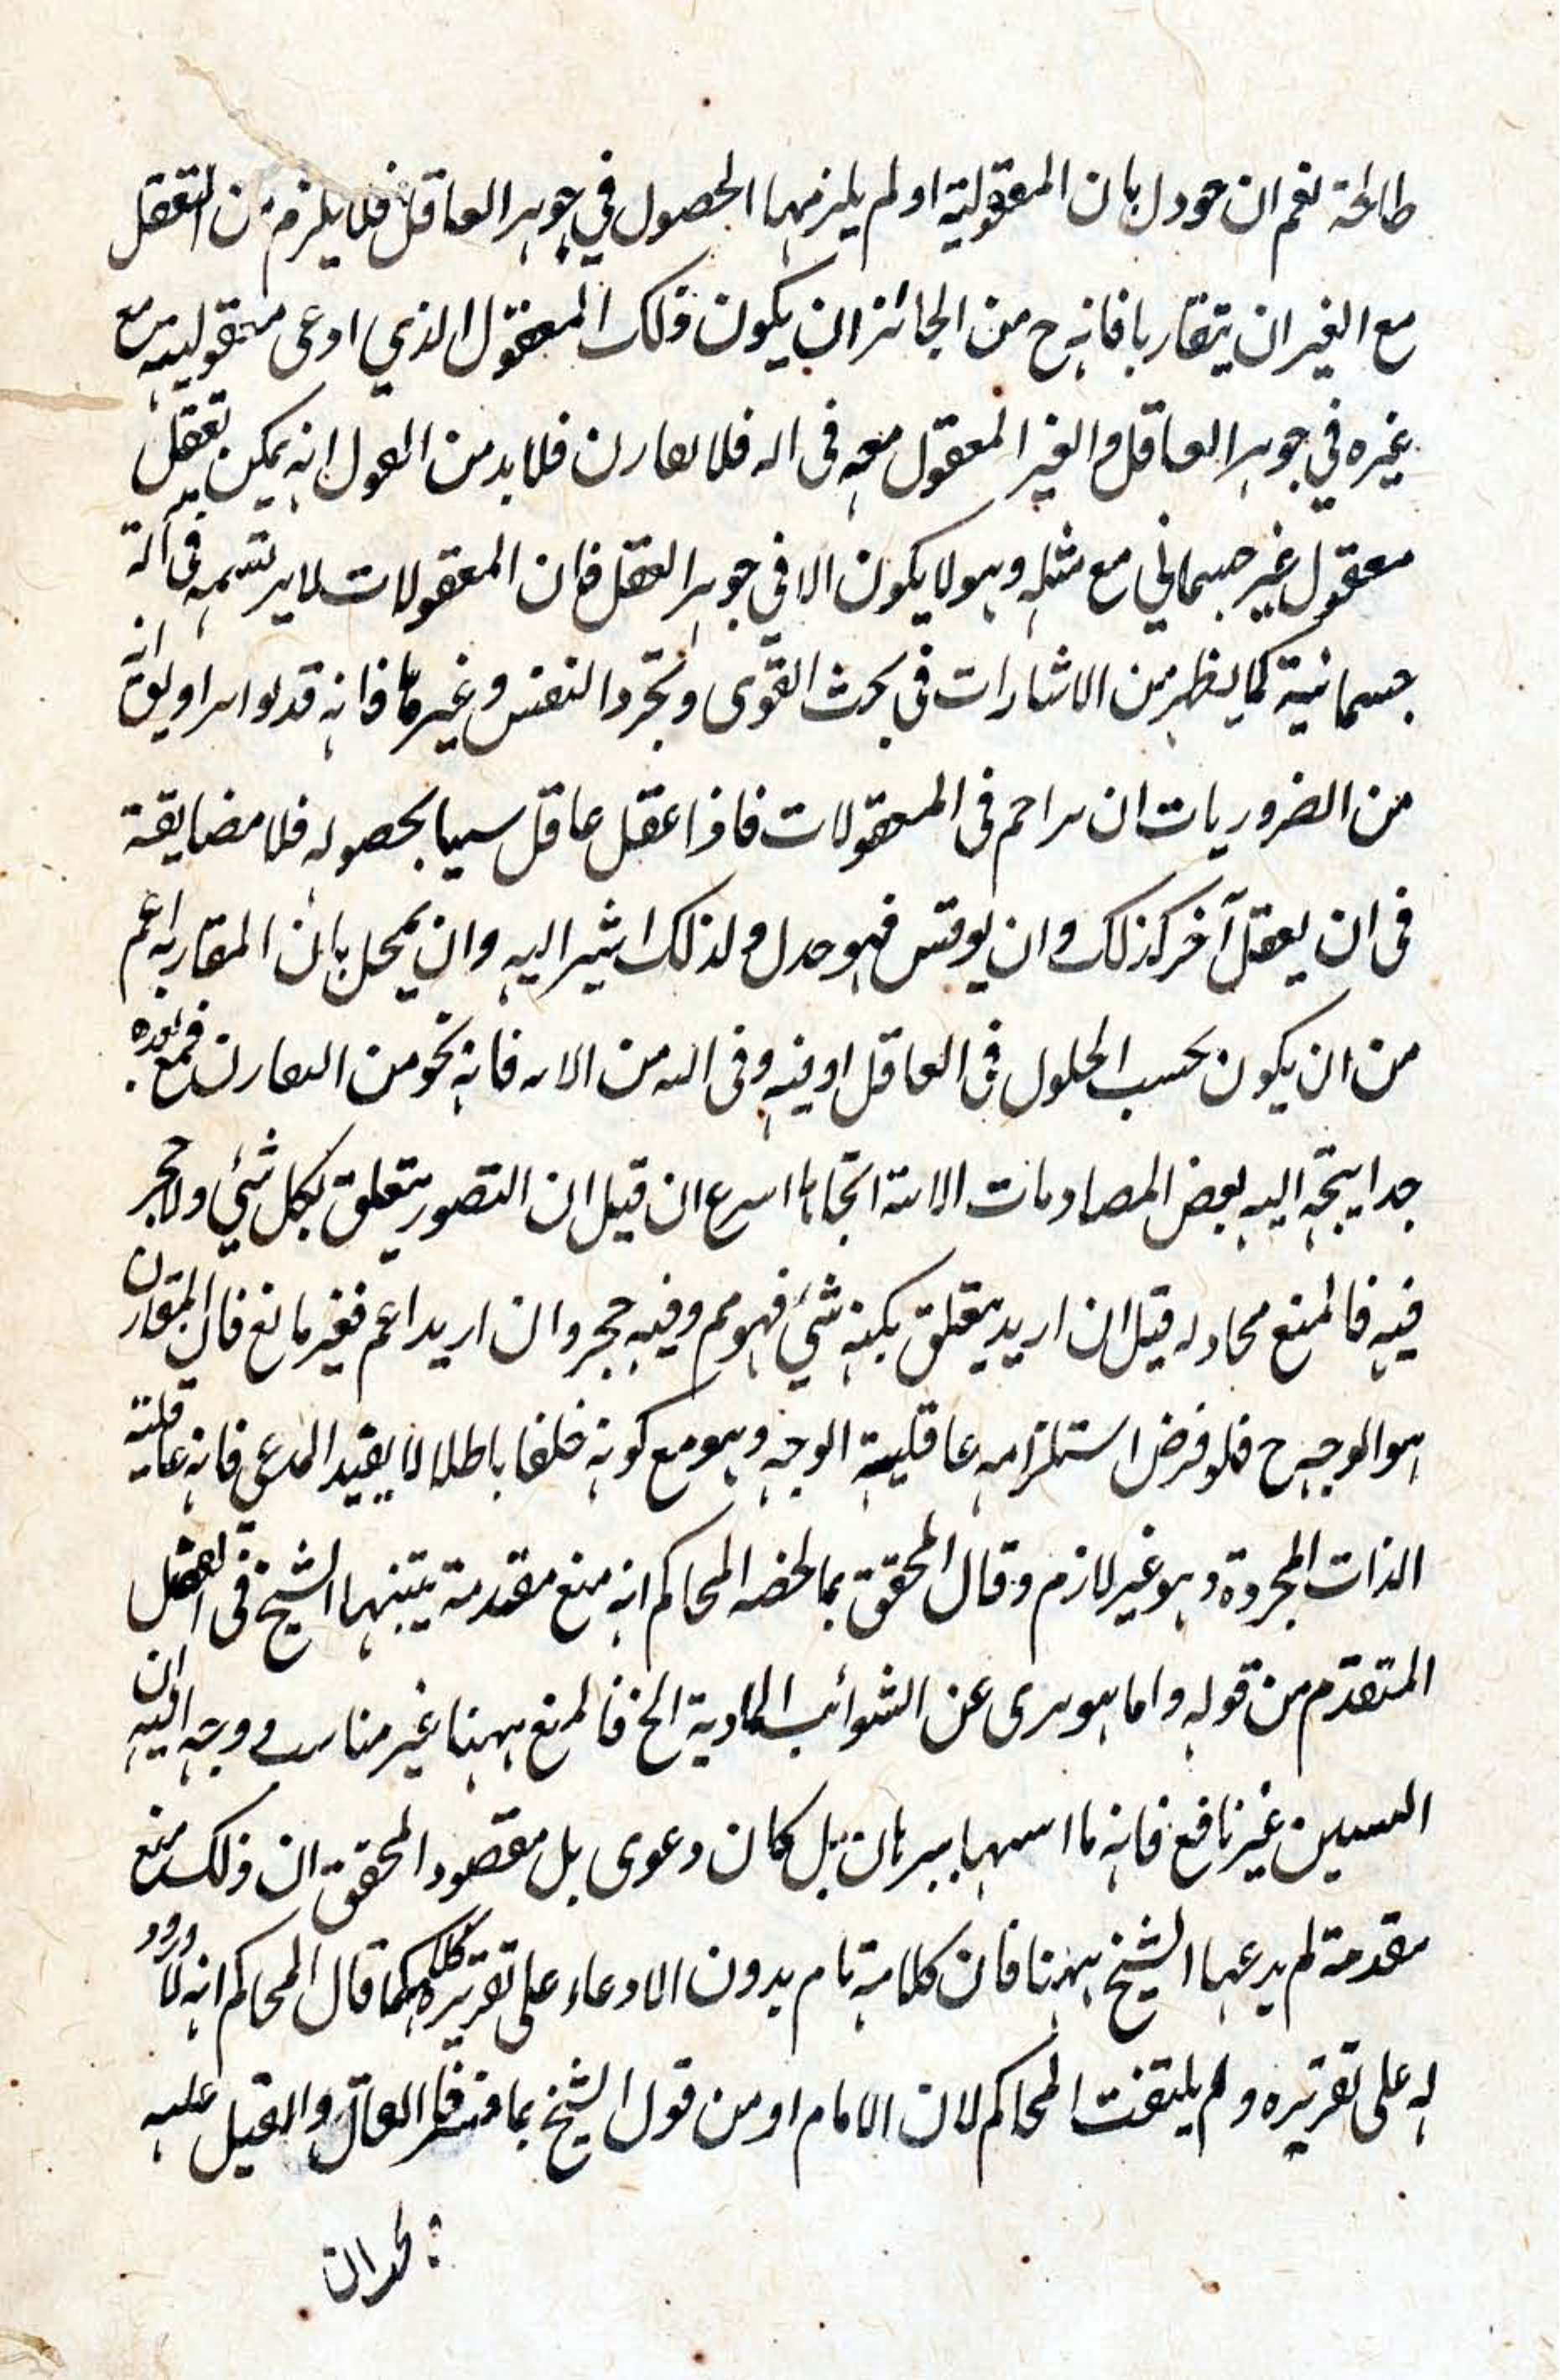 طالحة نعم ان جودل بان المعقولية او لم يلزمها الحصول في جوهر العاقل فلا يلزم من التعقل
مع الغير ان يتقاربا فانه ح من الجائز ان يكون ذلك المعقول الذي ادعى معقوليته مع
غيره في جوهر العاقل والغير المعقول معه فى اله فلا تعارن فلا بد من العول انه يمكن تعقل
معقول غير جسماني مع مثله وهو لا يكون الا في جوهر العقل فان المعقولات لا يرتسم فى آلة
جسمانية كما يظهر من الاشارات فى بحث القوى وتجرد النفس وغيرها فانه قد
من الضروريات ان راحم فى المعقولات فاذا عقل عاقل سيما بحصوله فلا مضايقة
فى ان يعقل آخر كذلك وان يوقش فهو جدل ولذلك اشير اليه وان تمحل بان المقاربه اعم
من ان يكون بحسب الحلول فى العاقل او فيه وفى اله من الاله فانه نحو من العارن فمع بعده
جدا يتجه اليه بعض المصادمات الاتية اتجاها اسرع ان قيل ان التصور يتعلق بكل شئ ولا حجر
فيه فالمنع محادله قيل ان اريد يتعلق بكنه شئ فهو مم وفيه حجر وان اريد اعم فغير مانع فان المقارن
هو الوجه ح فلو فرض استلزامه عاقلية الوجه وهو مع كونه خلفا باطلا لا يفيد المدعى فانه عاقلية
الذات المجردة وهو غير لازم وقال المحقق بما لخصه المحاكم انه منع مقدمة يتبنها الشيخ فى الفصل
المتقدم من قوله واما هو برى عن الشوائب المادية الخ فالمنع ههنا غير مناسب ووجه اليه ان
السبين غير نافع فانه ما اسهها ببرهان بل كان دعوى بل مقصود المحقق ان ذلك منع
مقدمة لم يدعها الشيخ ههنا فان كلامه تام بدون الادعاء على تقريره كلمه كما قال المحاكم انه لا ورود
له على تقريره ولم يلتفت المحاكم لان الامام او من قول الشيخ بما فسر فا العاقل والقيل عليه